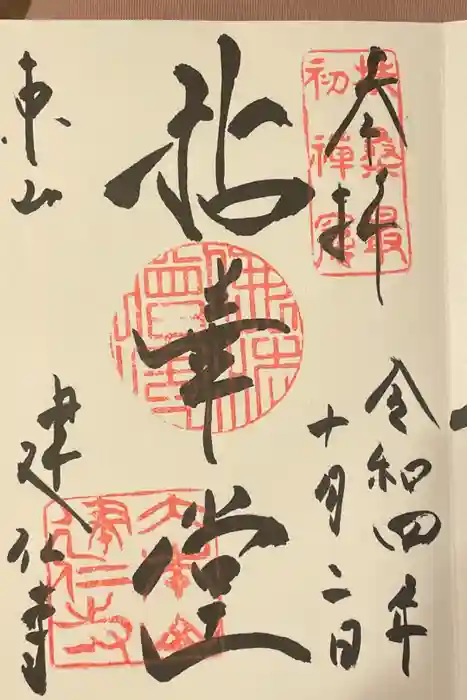 奉拝
扶桑最
初禅窟
令和四年
十月二日
拈華堂
東山
建仁寺